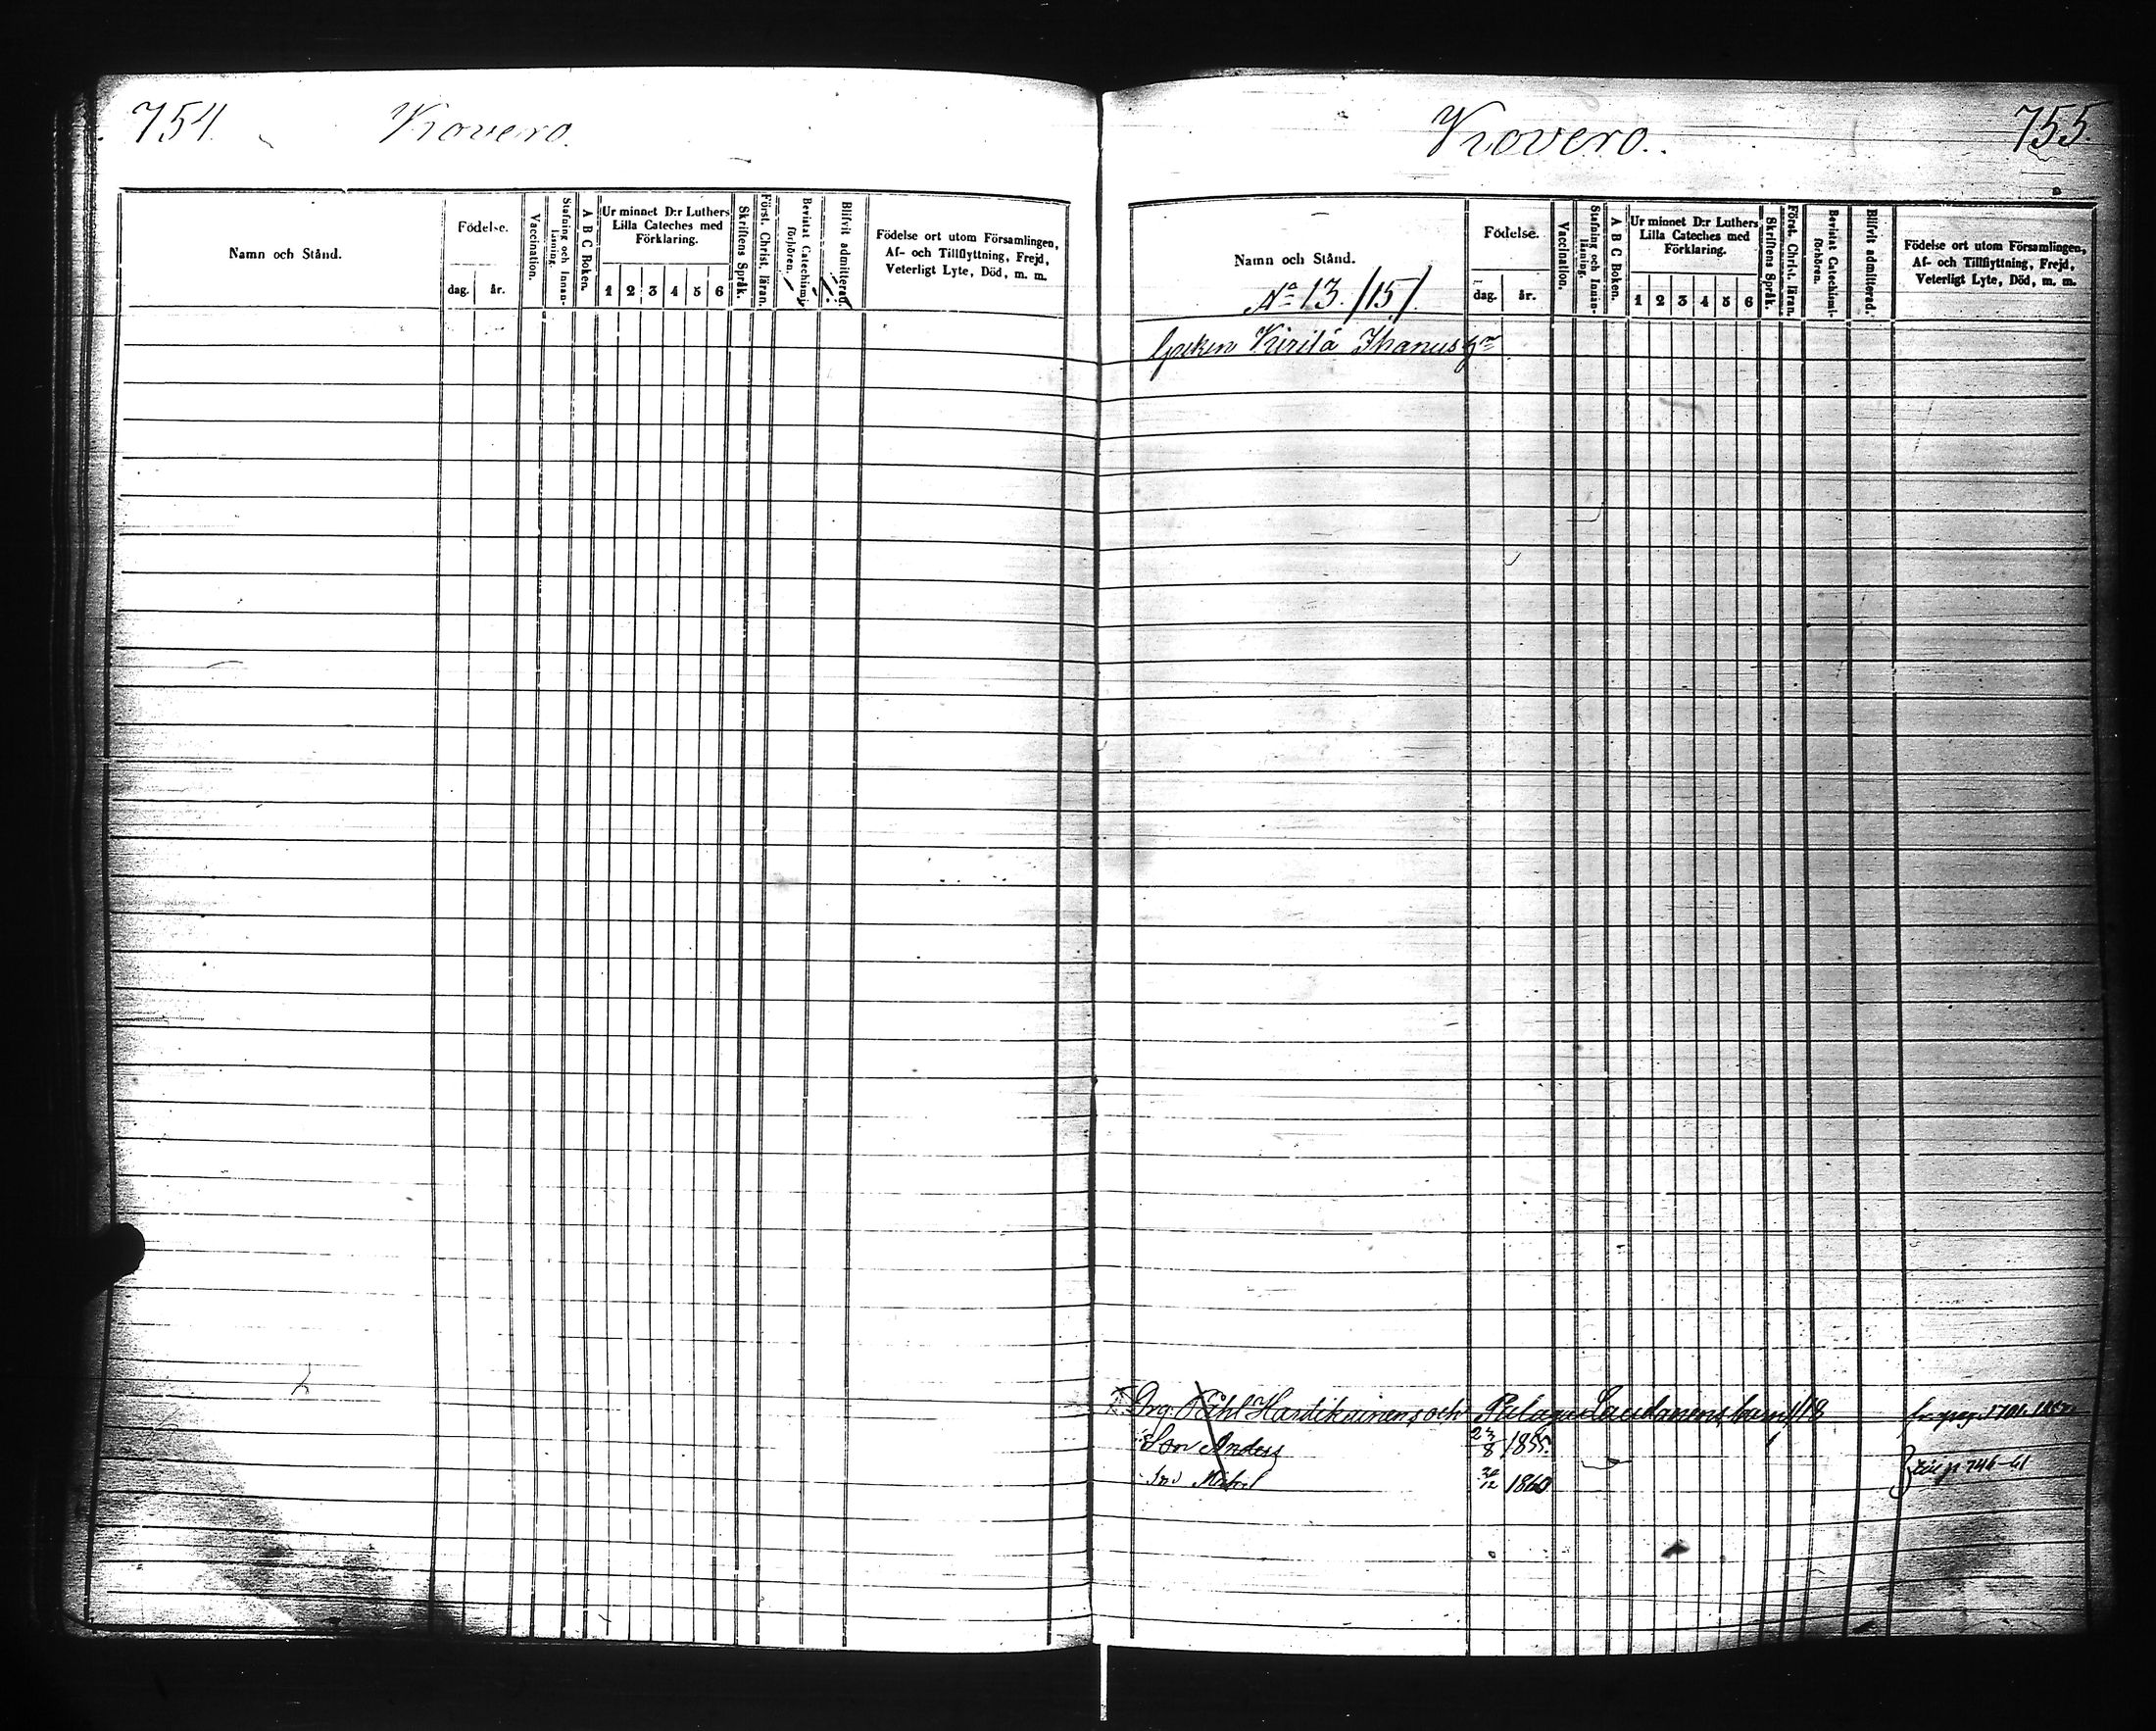 754. Kovero.
Namn och Stånd.
Födelse.
dag. år.
Vaccination.
Stafning och Innan-
läsning.
A B C Boken.
Ur minnet D:r Luthers
Lilla Cateches med
Förklaring.
1 2 3 4 5 6
Skriftens Språk.
Först. Christ. läran.
Bevistat Catechismi-
förhören.
Blifvit admitterad.
Födelse ort utom Församlingen,
Af- och Tillflyttning, Frejd,
Veterligt Lyte, Död, m. m.
Kovero. 755.
Namn och Stånd.
No 13. /15/.
Födelse.
dag. år.
Vaccination.
Stafning och Innan-
läsning.
A B C Boken.
Ur minnet D:r Luthers
Lilla Cateches med
Förklaring.
1 2 3 4 5 6
Skriftens Språk.
Först. Christ. läran.
Bevistat Catechismi-
förhören.
Blifvit admitterad.
Födelse ort utom Församlingen,
Af- och Tillflyttning, Frejd,
Veterligt Lyte, Död, m. m.
Greken Kirilä Ihanus
Hardikainens och
Son Anders 23/8 1855.
1860
p 746